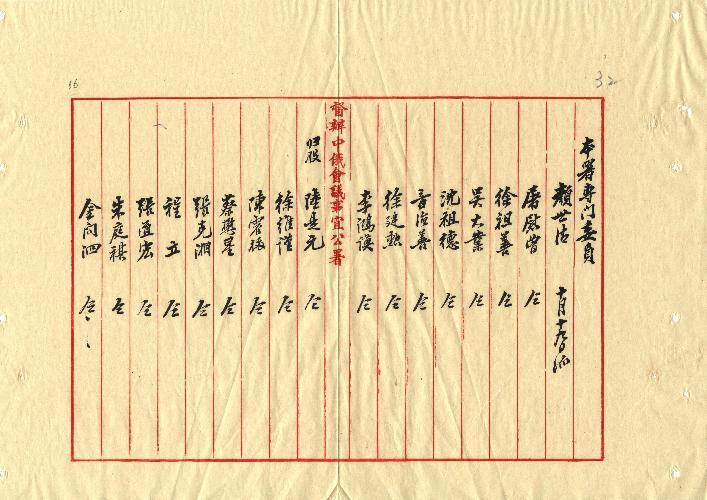 16
32
本署專门委員
顏世清 十月十九日派
屠慰曾 仝
徐祖善 仝
吳大業 仝
沈祖德 仝
言治善 仝
徐廷勳 仝
李鴻謨 仝
督辦中俄會議事宜公署
归股
陸是元 仝
徐維謹 仝
陳霆銳 仝
蔡懋星 仝
張克湘 仝
程立 仝
張道宏 仝
朱庭祺 仝
金问泗 仝